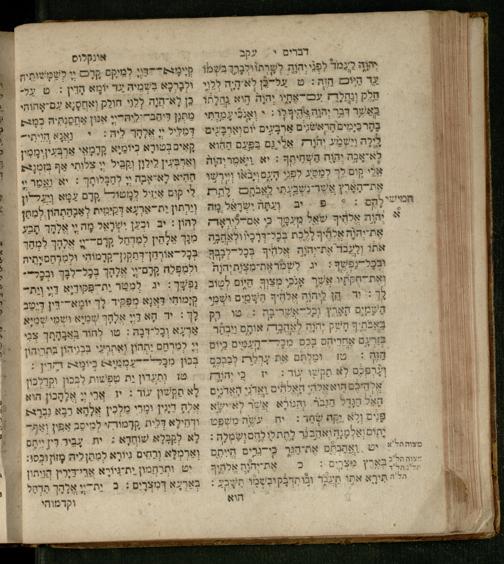 דברים י עקב
אונקלוס
יהוה לעמד לפני יהוה לשרתו ולברך בשמו
עד היום הזה : ט על כן לא היה ללוי
חלק ונחלה עם אחיו יהוה הוא נחלתו
כאשר דבר יהוה אלהיך לו : י ואנכי עמדתי
בהר כימים הראשנים ארבעים יום וארבעים
לילה וישמע יהוה אלי גם בפעם ההוא
לא אבה יהוה השחיתך : יא ויאמר יהוה
אלי קום לך למסע לפני העם ויבאו ויירשו
את הארץ אשר נשבעתי לאבתם לתת
להם : פ יב ועתה ישראל מה
יהוה אלהיך שאל מעמך כי אם ליראה
את יהוה אלהיך ללכת בכל דרכיו ולאהבה
אתו ולעבד את יהוה אלהיך בכל לבבך
ובכל נפשך : יג לשמר את מצות יהוה
ואת חקתיו אשר אנכי מצוך היום לטוב
לך : יד הן ליהוה אלהיך השמים ושמי
השמים הארץ וכל אשר בה : טו רק
באבתיך חשק יהוה לאהבה אותם ויבחר
בזרעם אחריהם בכם מכל העמים כיום
הזה : טז ומלתם את ערלת לבבכם
וערפכם לא תקשו עוד : יז כי יהוה
אלהיכם הוא אלהי האלהים ואדני האדנים
האל הגדל הגבר והנורא אשר לא ישא
פנים ולא יקח שחד : יח עשה משפט
יתום ואלמנה ואהב גר לתת לו לחם ושמלה :
יט ואהבתם את הגר כי גרים הייתם
בארץ מצרים : כ את יהוה אלהיך
תירא אתו תעבד ובו תדבק ובשמו תשבע :
הוא
חמישי
קיימא דיי למיקם קדם יי לשמשותיה
ולברכא בשמיה עד יומא הדין : ט על
כן לא הוה ללוי חולק ואחסנא עם אחוהי
מתנן דיהב ליה יי אנון אחסנתיה כמא
דמליל יי אלהך ליה : י ואנא הויתי
קאים בטורא כיומיא קדמאי ארבעין יממין
וארבעין לילון וקביל יי צלותי אף בזמנא
ההיא לא אבה יי לחבלותך : יא ואמר יי
לי קום איזיל למטול קדם עמא ויעלון
וירתון ית ארעא דקימית לאבהתהון למתן
להון : יב וכען ישראל מה יי אלהך תבע
מנך אלהין למדחל קדם יי אלהך למהך
בכל אורחן דתקנן קדמוהי ולמרחם יתיה
ולמפלח קדם יי אלהך בכל לבך ובכל
נפשך : יג למטר ית פקודיא דיי וית
קימוהי דאנא מפקיד לך יומא דין דייטב
לך : יד הא דיי אלהך שמיא ושמי שמיא
ארעא וכל דבה : טו לחוד באבהתך צבי
יי למרחם יתהון ואתרעי בבניהון בתריהון
בכון מכל עממיא כיומא הדין :
טז ותעדון ית טפשות לבכון וקדלכון
לא תקשון עוד : יז ארי יי אלהכון הוא
אלה דיינין ומרי מלכין אלהא רבא גברא
ודחילא דלית קדמוהי למיסב אפין ואף
לא לקבלא שוחדא : יח עביד דין ייתם
וארמלא ורחים גיורא למתן ליה מזון וכסו :
יט ותרחמון ית גיורא ארי דיירין הויתון
בארעא דמצרים : כ ית יי אלהך תדחל
וקדמוהי